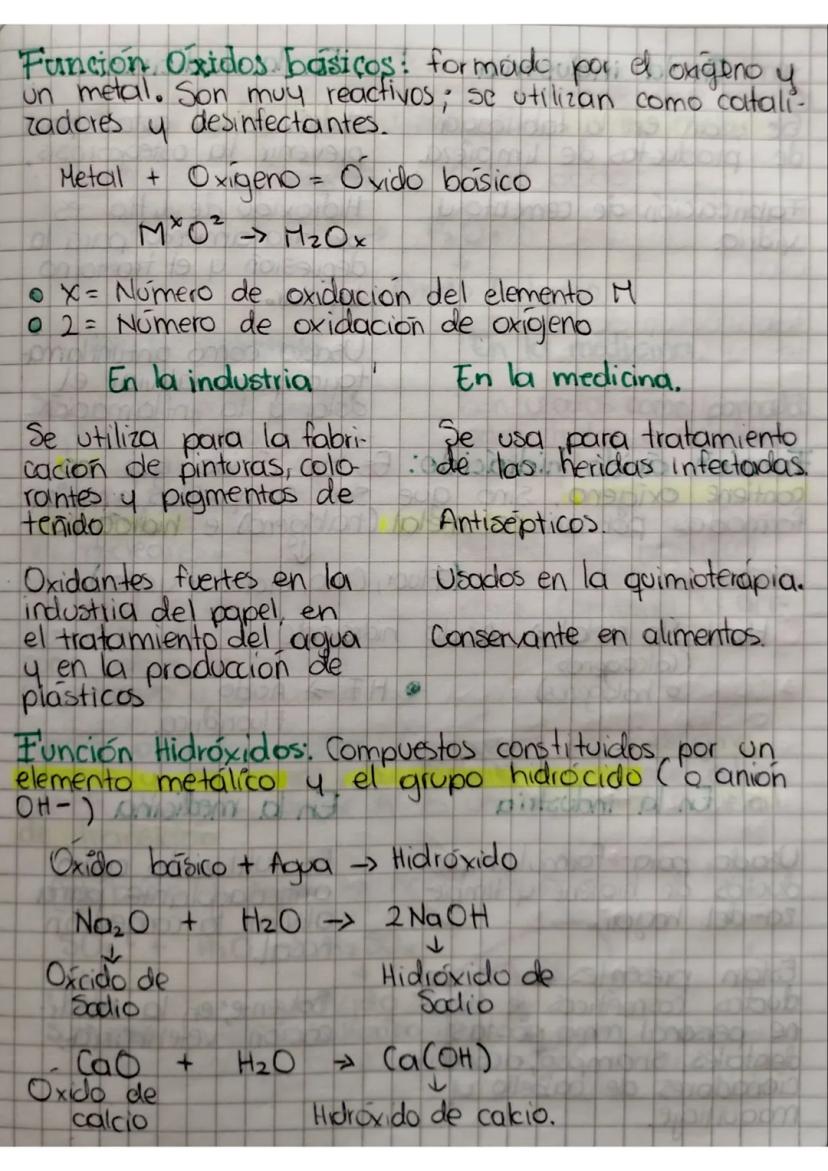 Función Óxidos básicos: formado por el oxígeno y
un metal. Son muy reactivos; se utilizan como catali-
zadores y desinfectantes.
Metal + Oxígeno = Óxido básico
MˣO² → M₂Oₓ
• X = Número de oxidación del elemento M
• 2 = Número de oxidación de oxígeno
En la industria
Se utiliza para la fabri-
cación de pinturas, colo-
rantes y pigmentos de
teñido
Oxidantes fuertes en la
industria del papel, en
el tratamiento del agua
y en la producción de
plásticos
En la medicina.
Se usa para tratamiento
de las heridas infectadas.
Antisépticos.
Usados en la quimioterápia.
Conservante en alimentos.
Función Hidróxidos: Compuestos constituidos por un
elemento metálico y el grupo hidrócido (o anión
OH-)
Oxido básico + Agua → Hidróxido
Na₂O + H₂O → 2NaOH
↓ ↓
Oxcido de Hidróxido de
Sodio Sodio
CaO + H₂O → Ca(OH)
Oxido de ↓
calcio Hidróxido de calcio.